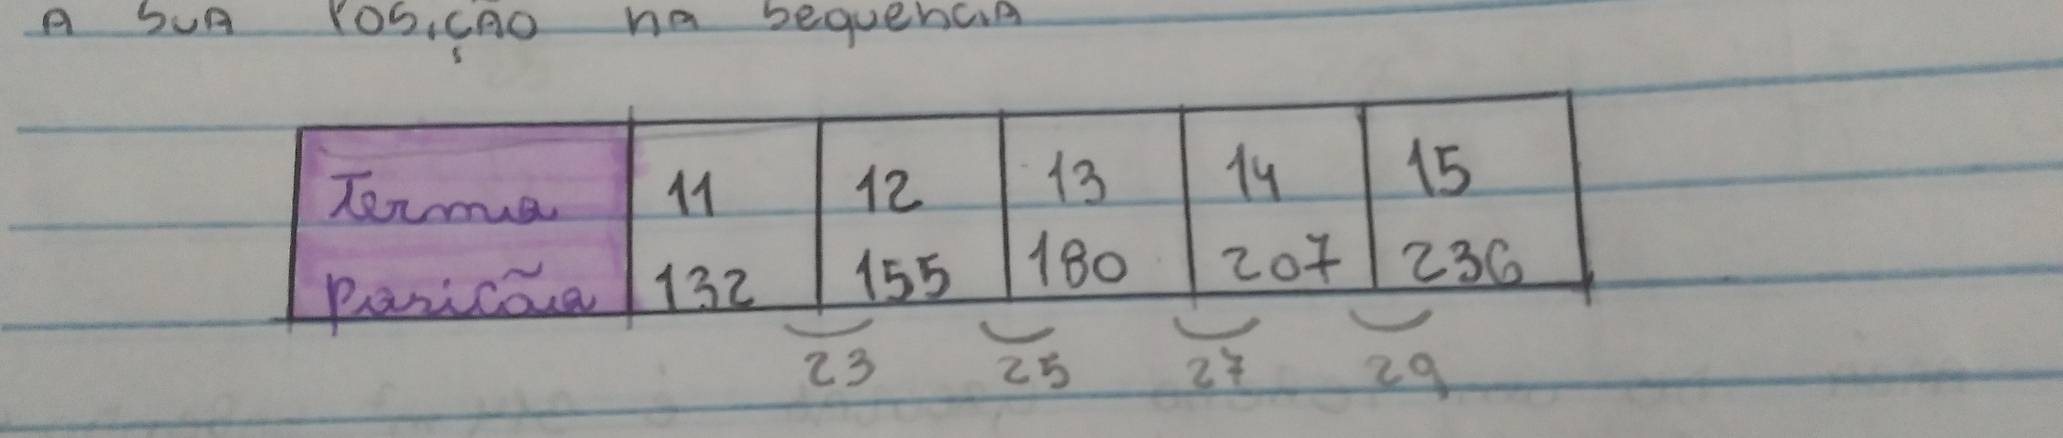 A SUA POSIÇÃO NA SEQUENCIA
Termo 11 12 13 14 15
Posição 132 155 180 207 236
23 25 27 29